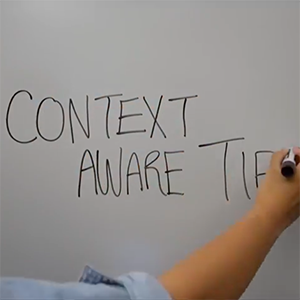 CONTEXT
AWARE